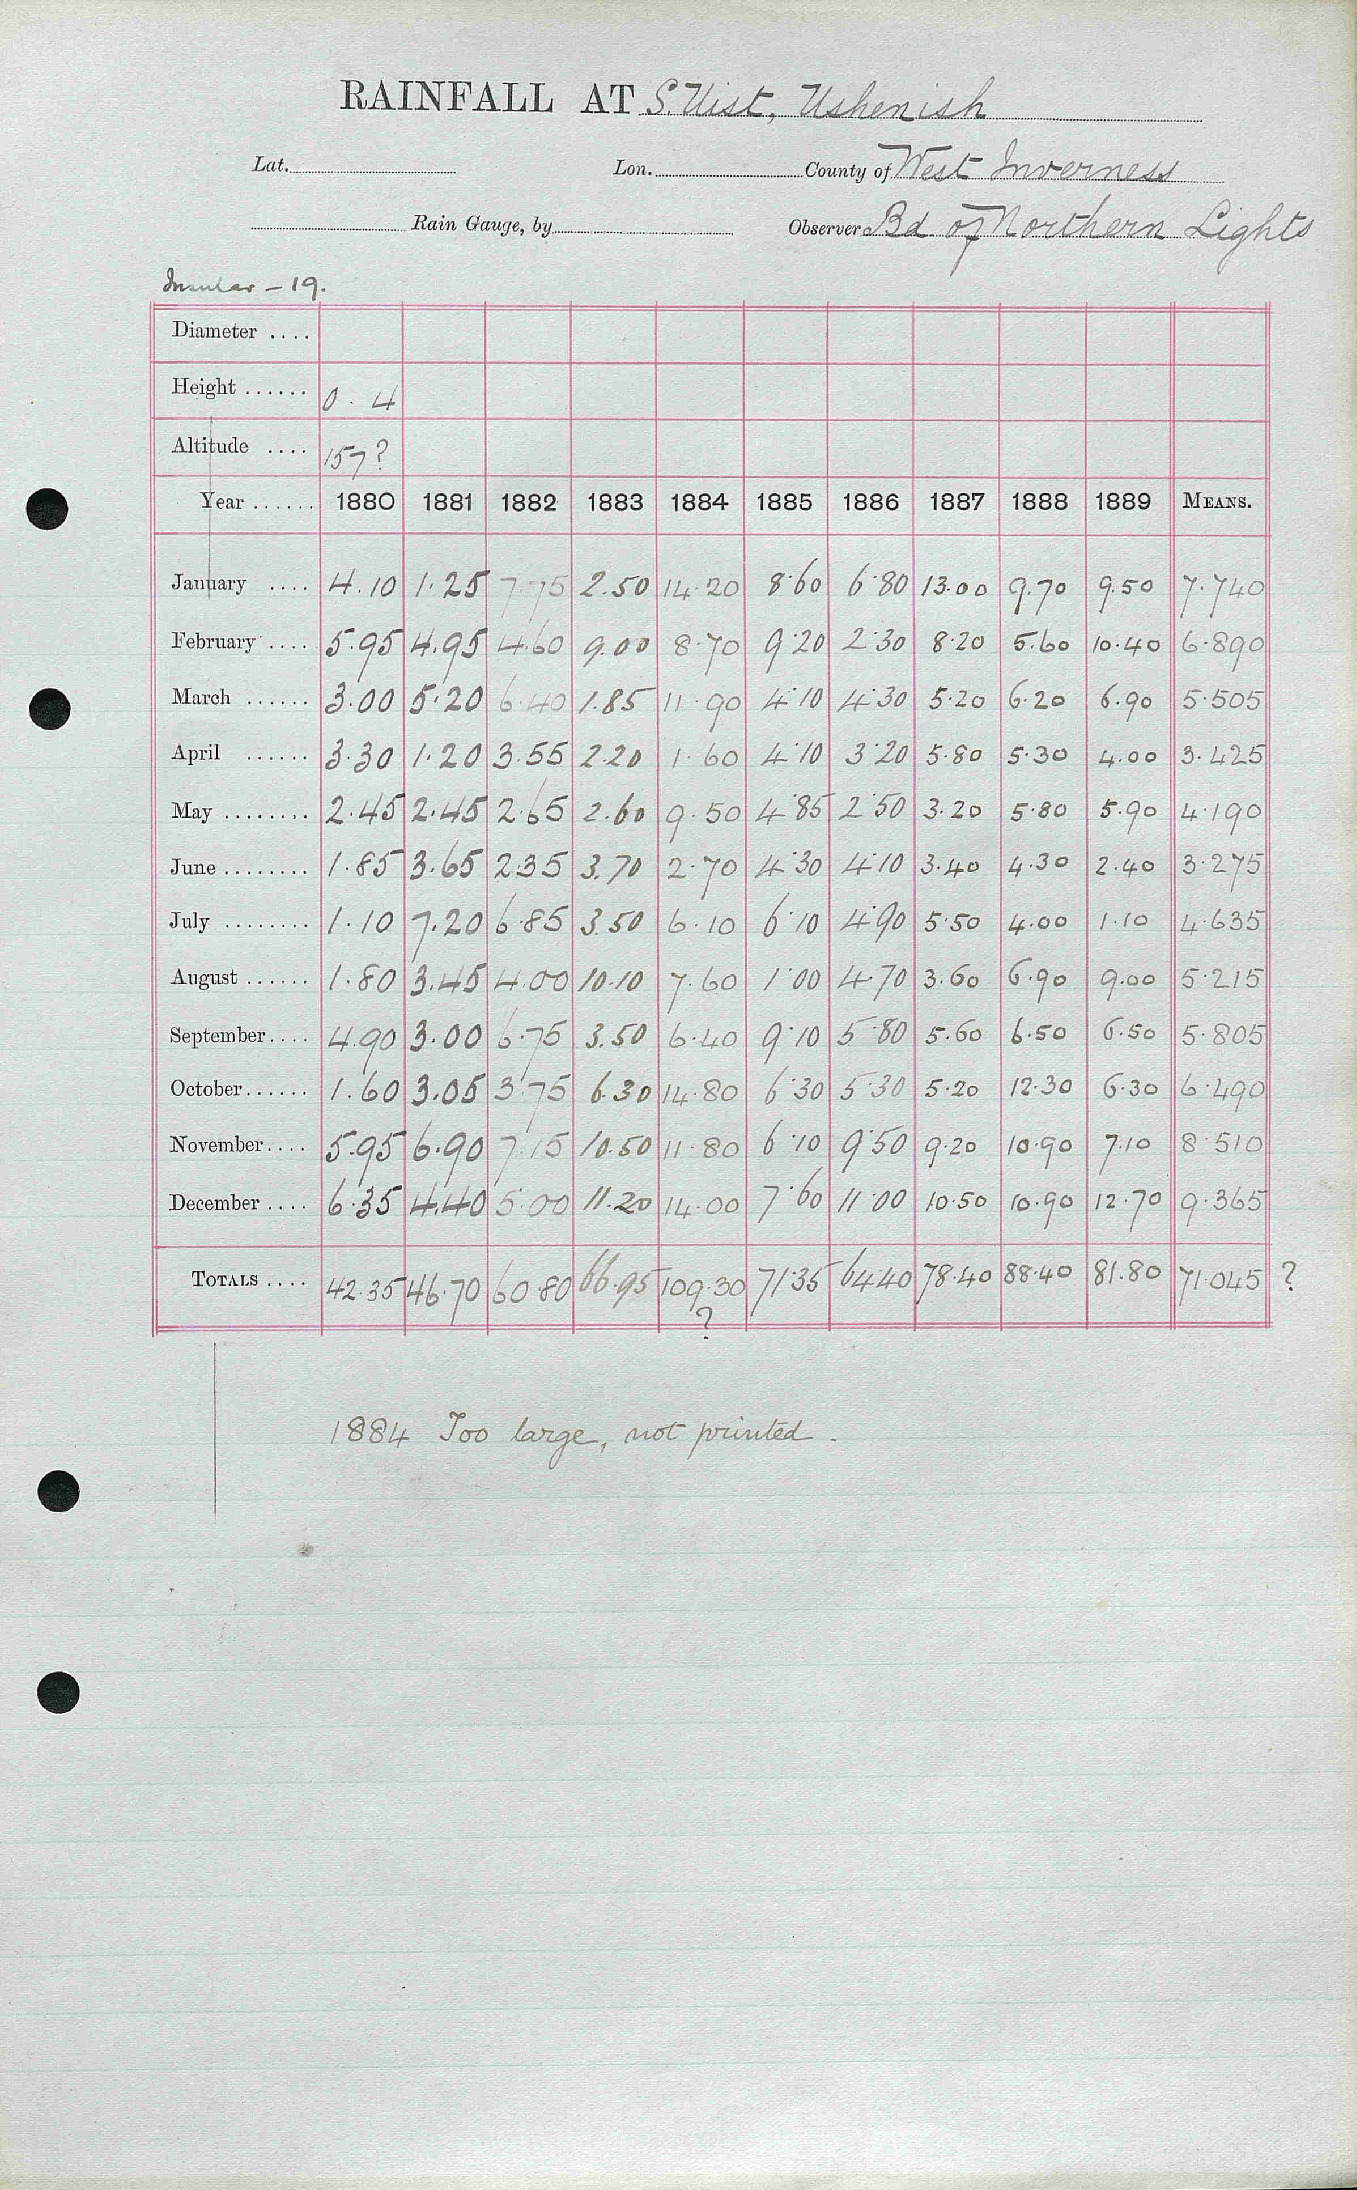 RAINFALL AT S. Uist, Ushenish
Lat. Lon. County of West Inverness
Rain Gauge, by Observer Bd. of Northern Lights
Insular - 19.
Diameter ....
Height ...... 0. 4
Altitude .... 157?
Year ...... 1880 1881 1882 1883 1884 1885 1886 1887 1888 1889 MEANS.
January .... 4.10 1.25 7.75 2.50 14.20 8.60 6.80 13.00 9.70 9.50 7.740
February .... 5.95 4.95 4.60 9.00 8.70 9.20 2.30 8.20 5.60 10.40 6.890
March ...... 3.00 5.20 6.40 1.85 11.90 4.10 4.30 5.20 6.20 6.90 5.505
April ...... 3.30 1.20 3.55 2.20 1.60 4.10 3.20 5.80 5.30 4.00 3.425
May ........ 2.45 2.45 2.65 2.60 9.50 4.85 2.50 3.20 5.80 5.90 4.190
June ........ 1.85 3.65 2.35 3.70 2.70 4.30 4.10 3.40 4.30 2.40 3.275
July ........ 1.10 7.20 6.85 3.50 6.10 6.10 4.90 5.50 4.00 1.10 4.635
August ...... 1.80 3.45 4.00 10.10 7.60 1.00 4.70 3.60 6.90 9.00 5.215
September .... 4.90 3.00 6.75 3.50 6.40 9.10 5.80 5.60 6.50 6.50 5.805
October ...... 1.60 3.05 3.75 6.30 14.80 6.30 5.30 5.20 12.30 6.30 6.490
November .... 5.95 6.90 7.15 10.50 11.80 6.10 9.50 9.20 10.90 7.10 8.510
December .... 6.35 4.40 5.00 11.20 14.00 7.60 11.00 10.50 10.90 12.70 9.365
TOTALS .... 42.35 46.70 60.80 66.95 109.30 71.35 64.40 78.40 88.40 81.80 71.045 ?
?
1884 Too large, not printed.